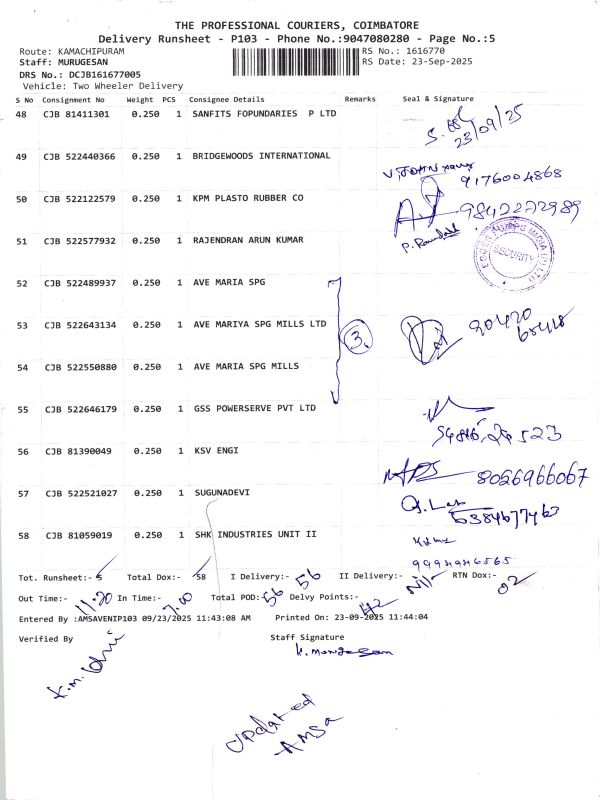 THE PROFESSIONAL COURIERS, COIMBATORE
Delivery Runsheet - P103 - Phone No.:9047080280 - Page No.:5
Route: KAMACHIPURAM RS No.: 1616770
Staff: MURUGESAN RS Date: 23-Sep-2025
DRS No.: DCJB161677005
Vehicle: Two Wheeler Delivery
S No Consignment No Weight PCS Consignee Details Remarks Seal & Signature
48 CJB 81411301 0.250 1 SANFITS FOPUNDARIES P LTD
23/09/25
49 CJB 522440366 0.250 1 BRIDGEWOODS INTERNATIONAL
9176004868
50 CJB 522122579 0.250 1 KPM PLASTO RUBBER CO
9842272989
51 CJB 522577932 0.250 1 RAJENDRAN ARUN KUMAR
SECURITY
52 CJB 522489937 0.250 1 AVE MARIA SPG
53 CJB 522643134 0.250 1 AVE MARIYA SPG MILLS LTD
3.
54 CJB 522550880 0.250 1 AVE MARIA SPG MILLS
55 CJB 522646179 0.250 1 GSS POWERSERVE PVT LTD
56 CJB 81390049 0.250 1 KSV ENGI
8026966067
57 CJB 522521027 0.250 1 SUGUNADEVI
6384677463
58 CJB 81059019 0.250 1 SHK INDUSTRIES UNIT II
9994946565
Tot. Runsheet:- 5 Total Dox:- 58 I Delivery:- 56 II Delivery:- Nil RTN Dox:- 02
Out Time:- 11.20 In Time:- 7.00 Total POD: 56 Delvy Points:- 42
Entered By :AMSAVENIP103 09/23/2025 11:43:08 AM Printed On: 23-09-2025 11:44:04
Verified By Staff Signature
K. Murugesan
Updated
Amsa